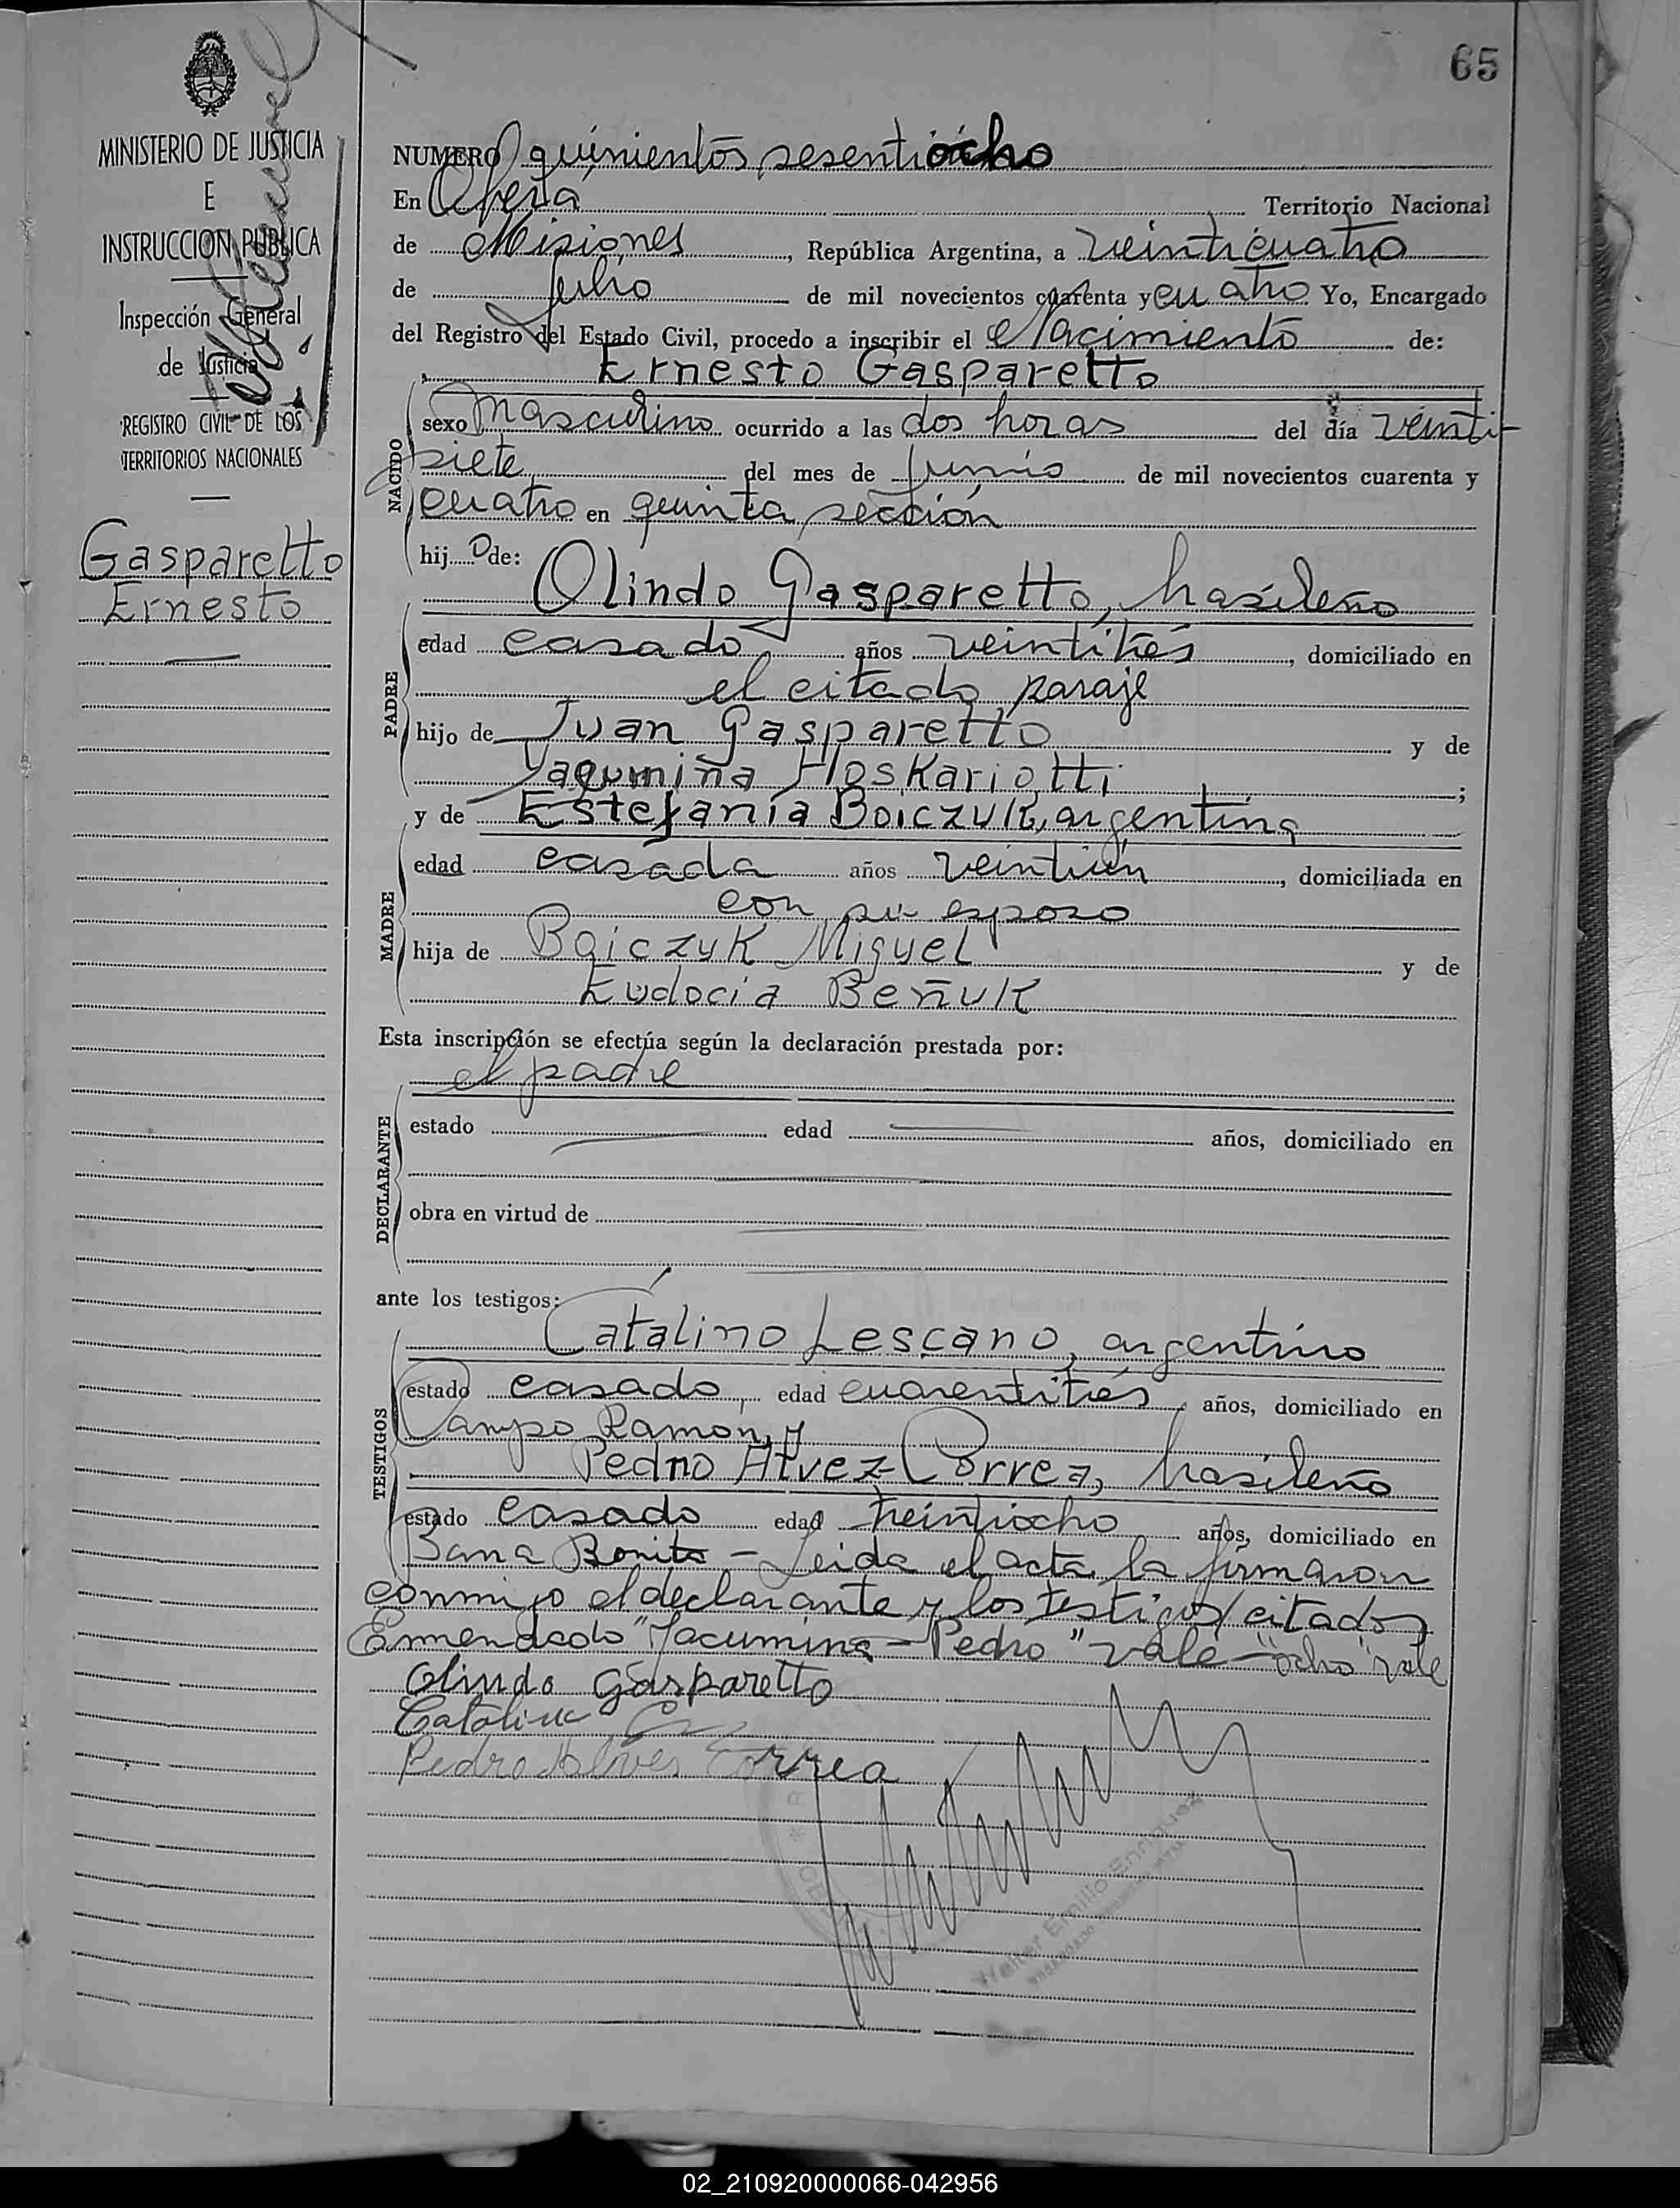 65
MINISTERIO DE JUSTICIA
E
INSTRUCCION PUBLICA
Inspección General
de Justicia
REGISTRO CIVIL DE LOS
TERRITORIOS NACIONALES
Gasparetto
Ernesto
NUMERO quinientos sesentiocho
En Oberá Territorio Nacional
de Misiones, República Argentina, a veinticuatro
de Julio de mil novecientos cuarenta y cuatro Yo, Encargado
del Registro del Estado Civil, procedo a inscribir el Nacimiento de:
Ernesto Gasparetto
NACIDO
sexo masculino ocurrido a las dos horas del día veinti-
siete del mes de Junio de mil novecientos cuarenta y
cuatro en quinta sección
hij o de:
Olindo Gasparetto, brasileño
PADRE
edad casado, años veintitrés, domiciliado en
el citado paraje
hijo de Juan Gasparetto y de
Yacumina Hoskariotti;
y de Estefanía Boiczuk, argentina
MADRE
edad casada años veintiún, domiciliada en
con su esposo
hija de Boiczuk Miguel y de
Eudocia Beñuk
Esta inscripción se efectúa según la declaración prestada por:
el padre
DECLARANTE
estado edad años, domiciliado en
obra en virtud de
ante los testigos:
Catalino Lescano, argentino
TESTIGOS
estado casado, edad cuarentitrés, años, domiciliado en
Campo Ramón, y
Pedro Alvez Correa, brasileño
estado casado edad treintiocho años, domiciliado en
Bana Bonita - Leída el acta la firmaron
conmigo el declarante y los testigos citados
Enmendado "Yacumina - Pedro" vale - "ocho" vale
Olindo Gasparetto
Catalino
Pedro Alves Correa
Walter Emilio Enriquez
02_210920000066-042956